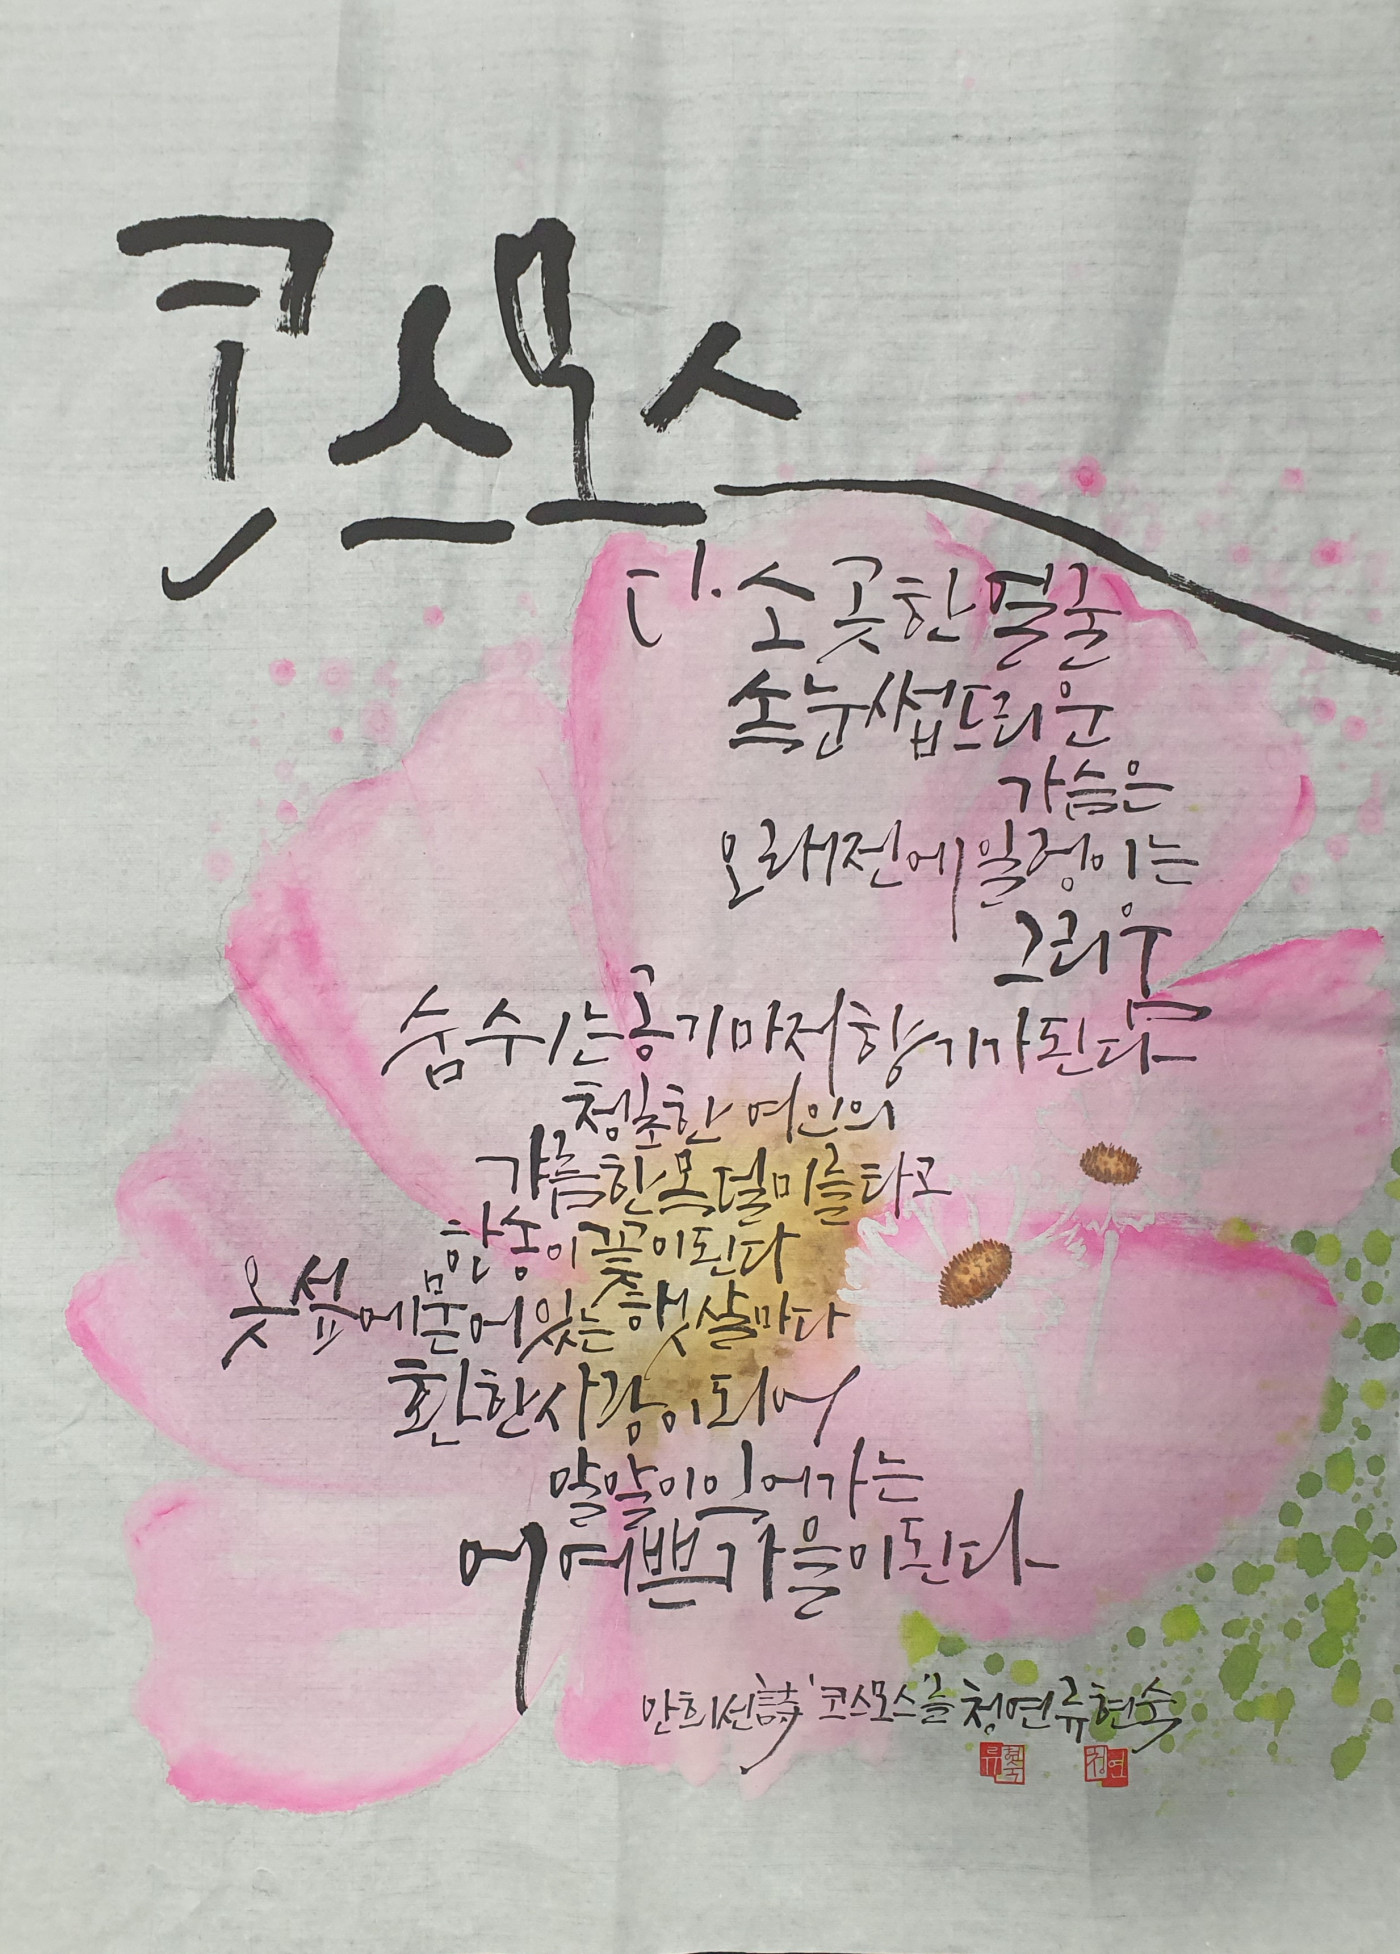 코스모스
다소곳한 얼굴
속눈썹 드리운
가슴은
오래전에 일렁이는
그리움
숨 쉬는 공기마저 향기가 된다
청초한 여인의
갸름한 목덜미를 타고
한송이 꽃이 된다
옷섶에 묻어 있는 햇살마다
환한 사랑이 되어
알알이 익어가는
어여쁜 가을이 된다
만희선 詩 '코스모스'를 청연 류현숙
류현숙 청연